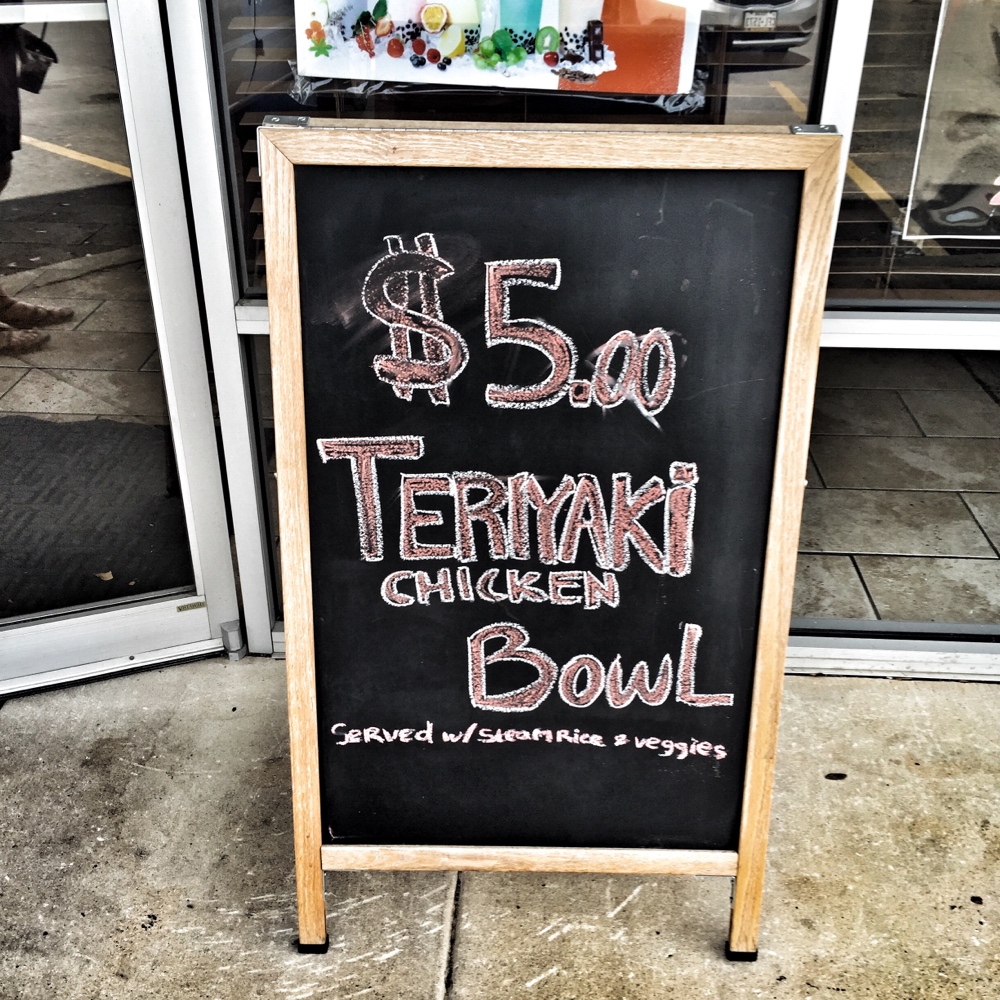 $5.00
TERIYAKi
CHICKEN
BOWL
SERVED w/ SteamRice & veggies